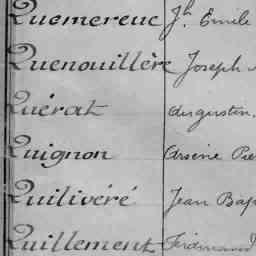 Quemereuc Jh. Emile
Quenouillère Joseph
Quérat Augustin.
Quignon Arsène Pie
Quilivéré Jean Bap
Quillement Ferdinand